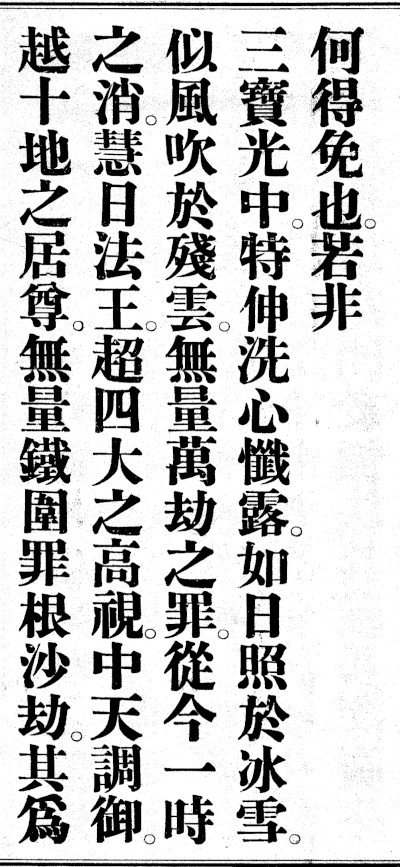 何得免也。若非
三寶光中。特伸洗心懺露。如日照於冰雪。
似風吹於殘雲。無量萬劫之罪。從今一時
之消。慧日法王。超四大之高視。中天調御。
越十地之居尊。無量鐵圍罪根沙劫。其爲